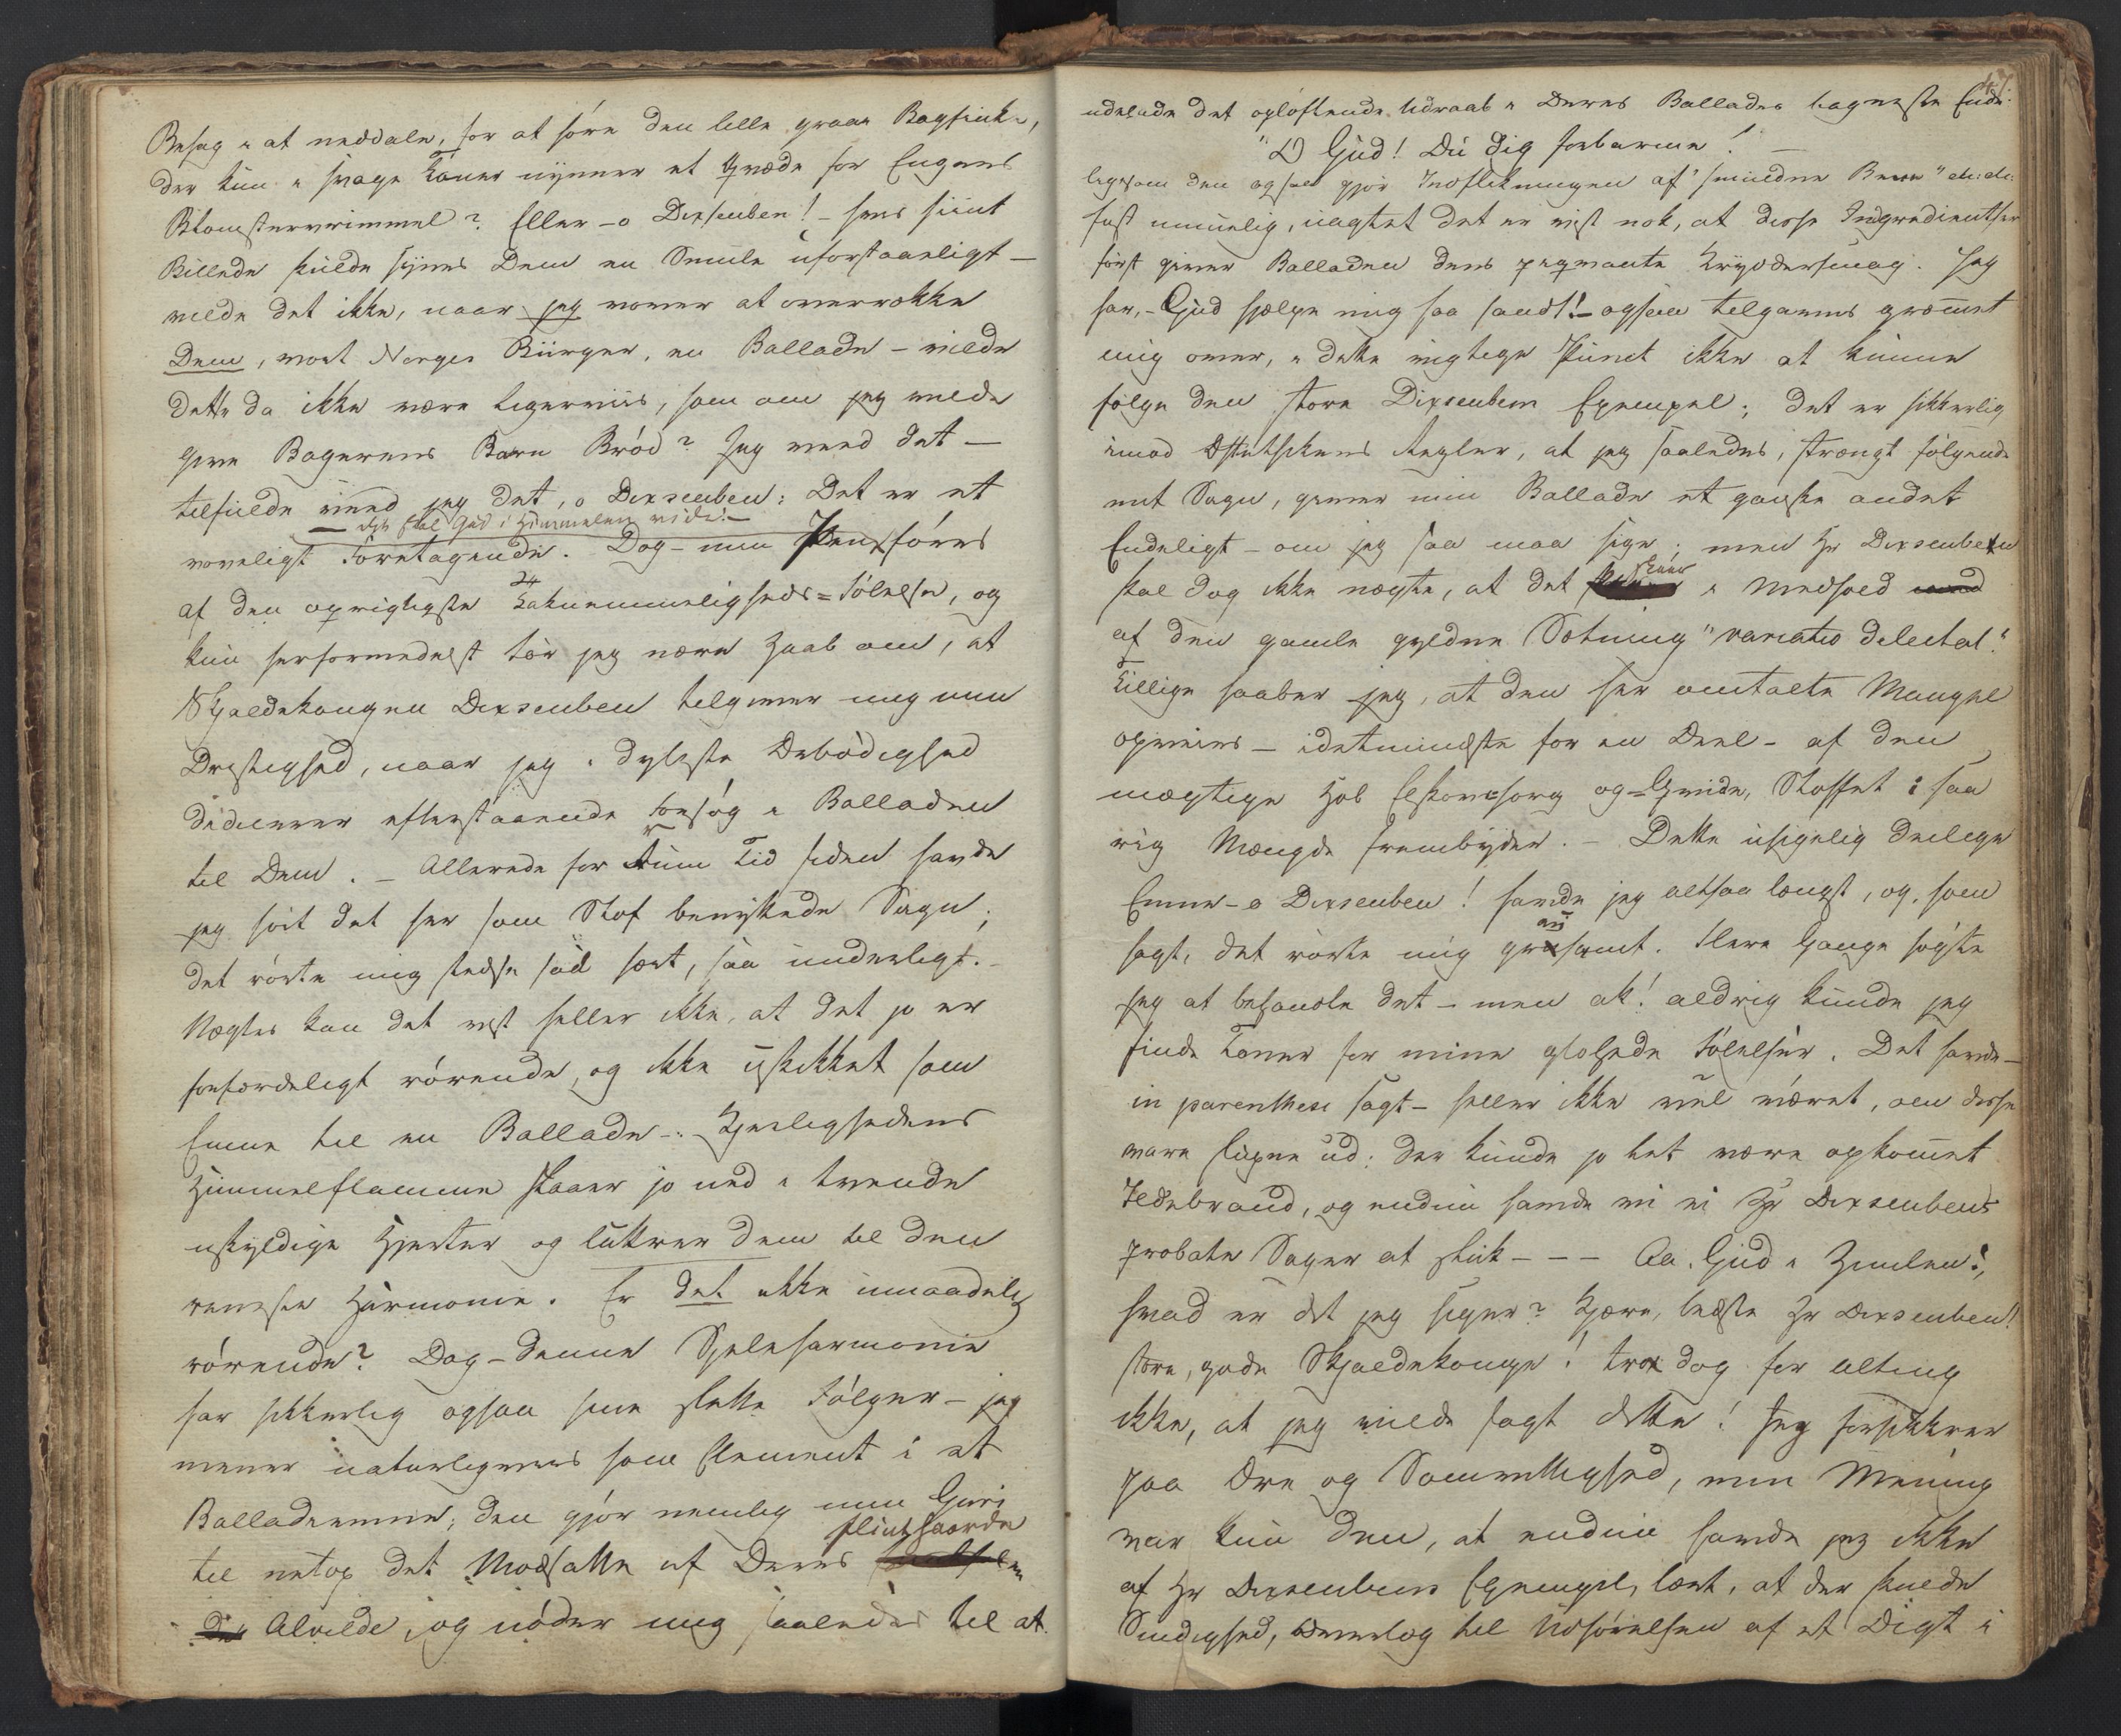 Behag i at neddale, for at høre den lille graae Bogfinke,
der kun i svage Toner nynner et Qvæde for Engens
Blomstervrimmel? Eller – o Dixseuben! – hvis siint
Billede skulde synes Dem en Smule uforstaaeligt –
vilde det ikke, naar jeg vover at overrække
Dem, vort Norges Bürger, en Ballade – vilde
dette da ikke være ligerviis, som om jeg vilde
give Bagerens Barn Brød? Jeg veed det –
tilfulde veed jeg det, o Dixseuben: Det er et
– det skal Gud i Himmelen vide! –
voveligt Foretagende. Dog – min Pen føres
af den oprigtigste Taknemmeligheds-Følelse, og
kun herformedelst tør jeg nære Haab om, at
Skjaldekongen Dixseuben tilgiver mig min
Dristighed, naar jeg i dybeste Ærbødighed
dedicerer efterstaaende Forsøg i Balladen
til Dem. – Allerede for rum Tid siden havde
jeg hørt det her som Stof benyttede Sagn;
det rørte mig stedse saa sært, saa underligt. –
Nægtes kan det vist heller ikke, at det jo er
forfærdeligt rørende, og ikke uskikket som
Emne til en Ballade –: Kjerlighedens
Himmelflamme slaaer jo ned i tvende
uskyldige Hjerter og lutrer dem til den
reneste Harmonie. Er det ikke umaadelig
rørende? Dog – denne Sjeleharmonie
har sikkerlig ogsaa sine slette Følger – jeg
mener naturligviis som Element i et
Balladeemne; den gjør nemlig min Guri
til netop det Modsatte af Deres flinthaarde
Alvilde, og nøder mig saaledes til at
udelade det opløftende Udraab i Deres Ballades bageneste Ende:
"O Gud! Du dig forbarme!" –
ligesom den ogsaa gjør Indflikningen af "smuldne Been" etc: etc:
fast umuelig, uagtet det er vist nok, at disse Ingredientser
først giver Balladen dens pigmante Krydersmag. Jeg
har, – Gud hjelpe mig saa sandt! – ogsaa tilgavns græmmet
mig over, i dette vigtige Punct ikke at kunne
følge den store Dixseubens Exempel; det er sikkerlig
imod Æsthetikens Regler, at jeg saaledes, strængt følgende
mit Sagn, giver min Ballade et ganske andet
Endeligt – om jeg saa maa sige; men Hr Dixseuben
skal dog ikke nægte, at det skeer i Medhold
af den gamle gyldne Sætning "variatio delectat."
Tillige haaber jeg, at den her omtalte Mangel
opveies – idetmindste for en Deel – af den
mægtige Hob Elskovssorg og -Qvide, Stoffet i saa
rig Mængde frembyder. – Dette usigelig deilige
Emne – o Dixseuben! havde jeg altsaa længst, og, som
sagt, det rørte mig grusomt. Flere Gange søgte
jeg at behandle det – men ak! aldrig kunde jeg
finde Toner for mine gloheede Følelser. Det havde –
in parenthesi sagt – heller ikke vel været, om disse
vare slupne ud; der kunde jo let være opkommet
Ildebrand, og endnu havde vi ei Hr Dixseubens
probate Sager at sluk – – – Aa, Gud i Himlen!,
hvad er det jeg siger? Kjære, bedste Hr Dixseuben!
store, gode Skjaldekonge! tro dog for alting
ikke, at jeg vilde sagt dette! Jeg forsikkrer
paa Ære og Samvittighed, min Mening
var kun den, at endnu havde jeg ikke
af Hr Dixseubens Exempel, lært, at der skulde
Sindighed, Overlæg til Udførelsen af et Digt i